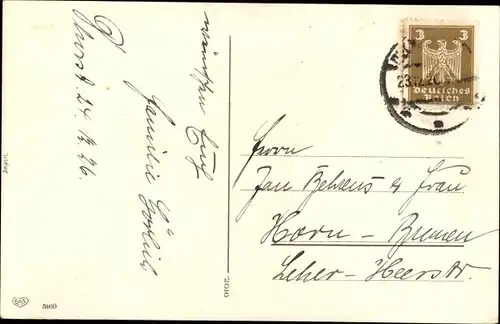 wünschen Euch
Familie
24.12.26.
3 3
Deutsches
Reich
Herrn
Jan Behrens & Frau
Horn - Bremen
Leher-Heerstr.
3169